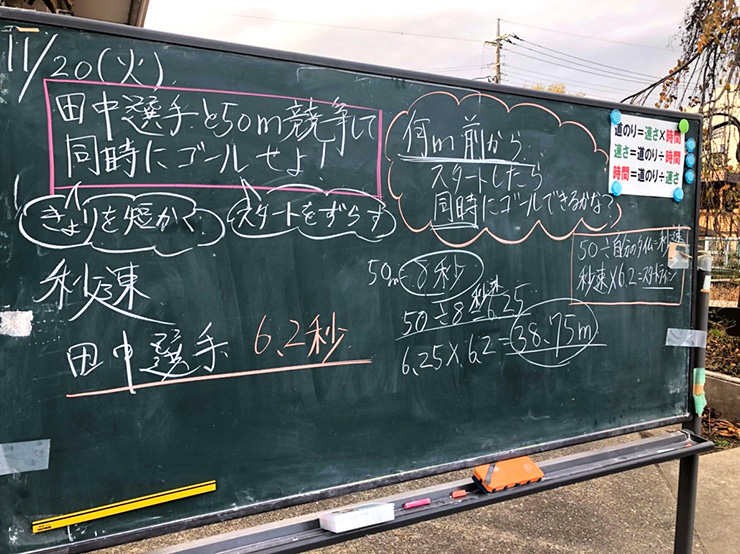 11/20(火)
田中選手と50m競争して
同時にゴールせよ!
きょりを短かく
スタートをずらす
秒速
田中選手 6.2秒
何m前から
スタートしたら
同時にゴールできるかな?
50m=8秒
50÷8=秒速6.25
6.25×6.2=38.75m
道のり=速さ×時間
速さ=道のり÷時間
時間=道のり÷速さ
50÷自分のタイム=秒速
秒速×6.2=スタートライン